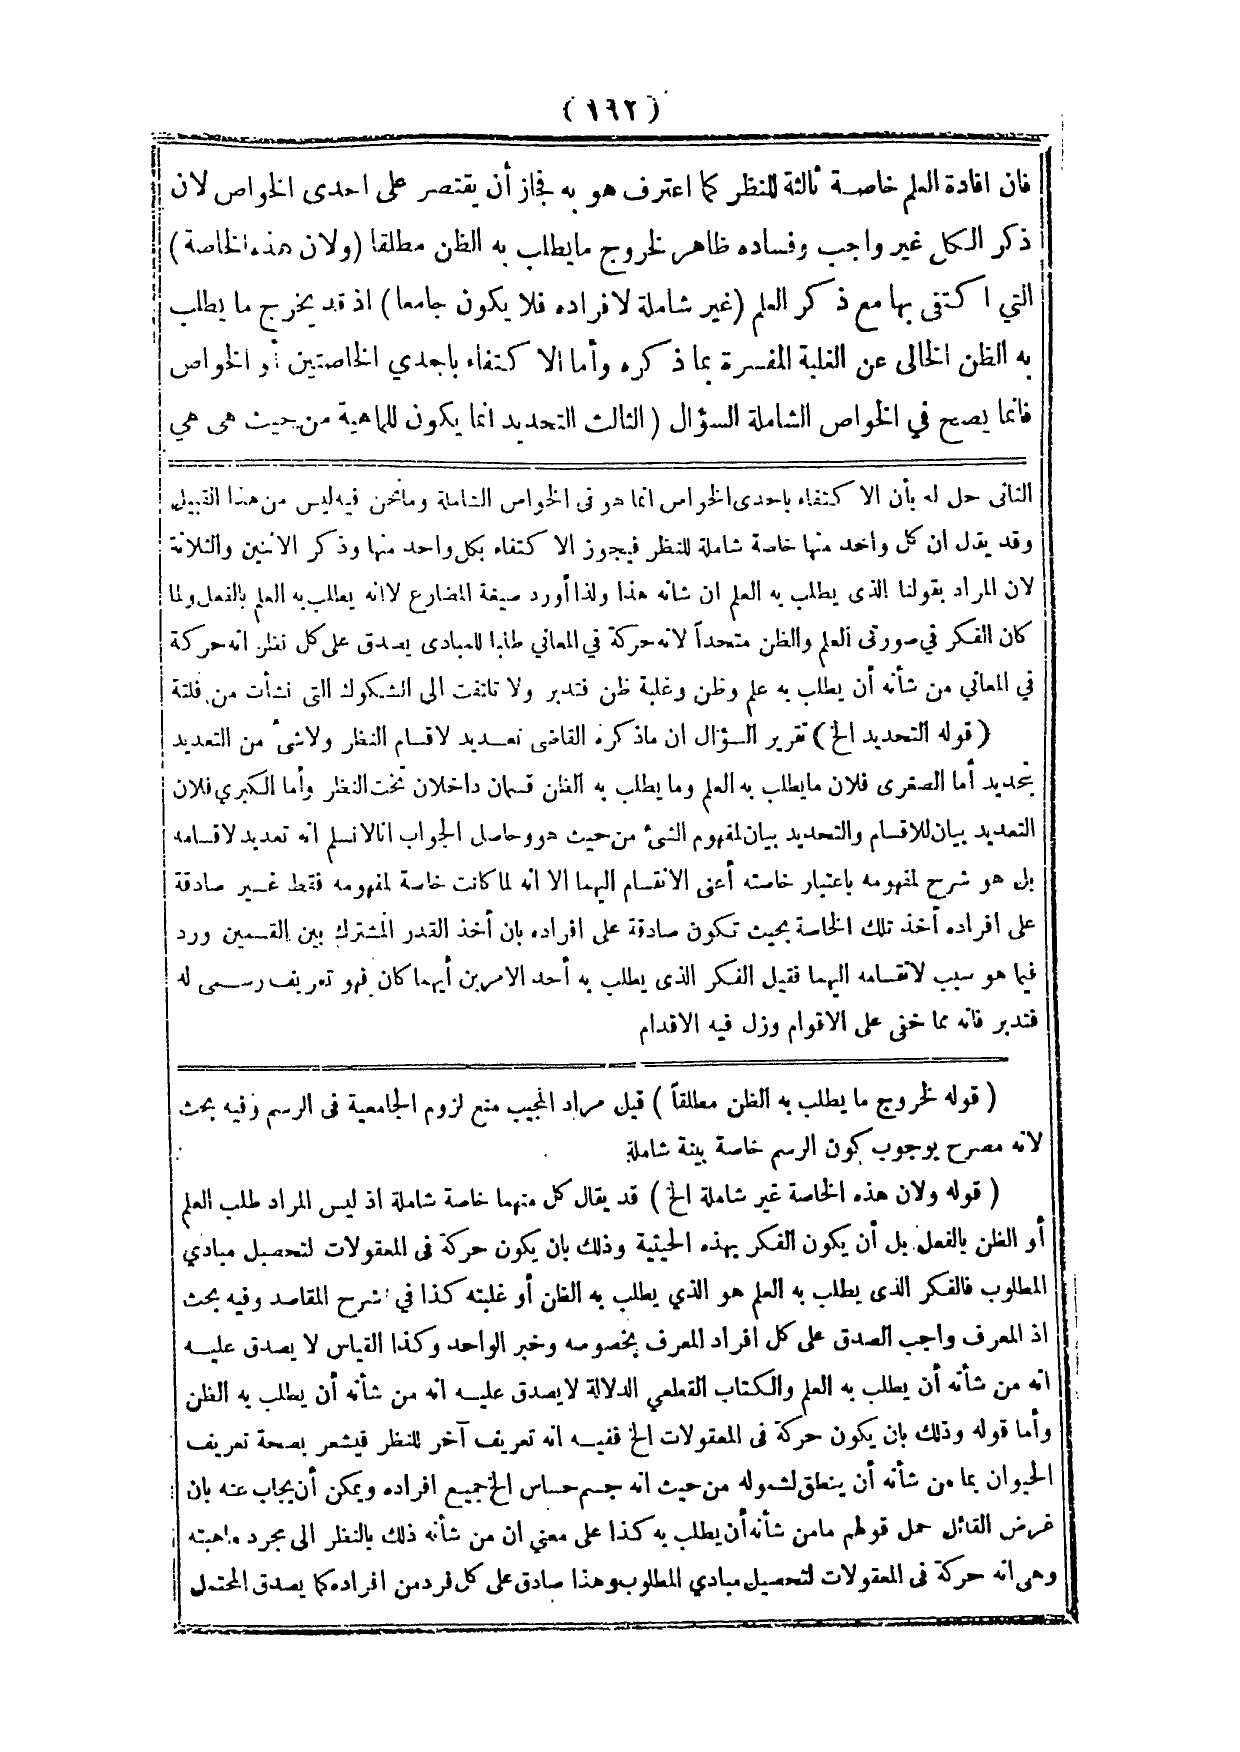 (١٦٢)
فان افادة العلم خاصة ثالثة للنظر كما اعترف هو به فجاز أن يقتصر على احدى الخواص لان
ذكر الكل غير واجب وفساده ظاهر لخروج مايطلب به الظن مطلقا (ولان هذه الخاصة)
التي اكتفى بها مع ذكر العلم (غير شاملة لافراده فلا يكون جامعا) اذ قد يخرج ما يطلب
به الظن الخالى عن الغلبة المفسرة بما ذكره وأما الاكتفاء باحدي الخاصتين أو الخواص
فانما يصح في الخواص الشاملة السؤال (الثالث التحديد انما يكون للماهية من حيث هى هي
الثانى حل له بأن الاكتفاء باحدى الخواص انما هو فى الخواص الشاملة ومانحن فيه ليس من هذا القبيل
وقد يقال ان كل واحد منها خاصة شاملة للنظر فيجوز الاكتفاء بكل واحد منها وذكر الاثنين والثلاثة
لان المراد بقولنا الذى يطلب به العلم ان شانه هذا ولذا أورد صيغة المضارع لاانه يطلب به العلم بالفعل ولما
كان الفكر في صورتى العلم والظن متحداً لانه حركة في المعاني طلبا للمبادى يصدق على كل نظر انه حركة
في المعاني من شأنه أن يطلب به علم وظن وغلبة ظن فتدبر ولا تلتفت الى الشكوك التى نشأت من فلتة
(قوله التحديد الخ) تقرير السؤال ان ماذكره القاضى تعديد لاقسام النظر ولاشئ من التعديد
بتحديد أما الصغرى فلان مايطلب به العلم وما يطلب به الظن قسمان داخلان تحت النظر وأما الكبري فلان
التعديد بيان للاقسام والتحديد بيان لمفهوم الشئ من حيث هو وحاصل الجواب انالانسلم انه تعديد لاقسامه
بل هو شرح لمفهومه باعتبار خاصته أعنى الانقسام اليهما الا انه لما كانت خاصة لمفهومه فقط غير صادقة
على افراده أخذ تلك الخاصة بحيث تكون صادقة على افراده بان أخذ القدر المشترك بين القسمين ورد
فيما هو سبب لانقسامه اليهما فقيل الفكر الذى يطلب به أحد الامرين أيهما كان فهو تعريف رسمى له
فتدبر فانه مما خفى على الاقوام وزل فيه الاقدام
(قوله لخروج ما يطلب به الظن مطلقاً) قيل مراد المجيب منع لزوم الجامعية فى الرسم وفيه بحث
لانه مصرح بوجوب كون الرسم خاصة بينة شاملة
(قوله ولان هذه الخاصة غير شاملة الخ) قد يقال كل منهما خاصة شاملة اذ ليس المراد طلب العلم
أو الظن بالفعل بل أن يكون الفكر بهذه الحيثية وذلك بان يكون حركة فى المعقولات لتحصيل مبادي
المطلوب فالفكر الذى يطلب به العلم هو الذي يطلب به الظن أو غلبته كذا في شرح المقاصد وفيه بحث
اذ المعرف واجب الصدق على كل افراد المعرف بخصوصه وخبر الواحد وكذا القياس لا يصدق عليه
انه من شأنه أن يطلب به العلم والكتاب القطعي الدلالة لايصدق عليه انه من شأنه أن يطلب به الظن
وأما قوله وذلك بان يكون حركة فى المعقولات الخ ففيه انه تعريف آخر للنظر فيشعر بصحة تعريف
الحيوان بما من شأنه أن ينطق لشموله من حيث انه جسم حساس الخ جميع افراده ويمكن أن يجاب عنه بان
غرض القائل حمل قولهم مامن شأنه أن يطلب به كذا على معني ان من شأنه ذلك بالنظر الى مجرد ماهيته
وهى انه حركة فى المعقولات لتحصيل مبادي المطلوب وهذا صادق على كل فرد من افراده كما يصدق المحتمل